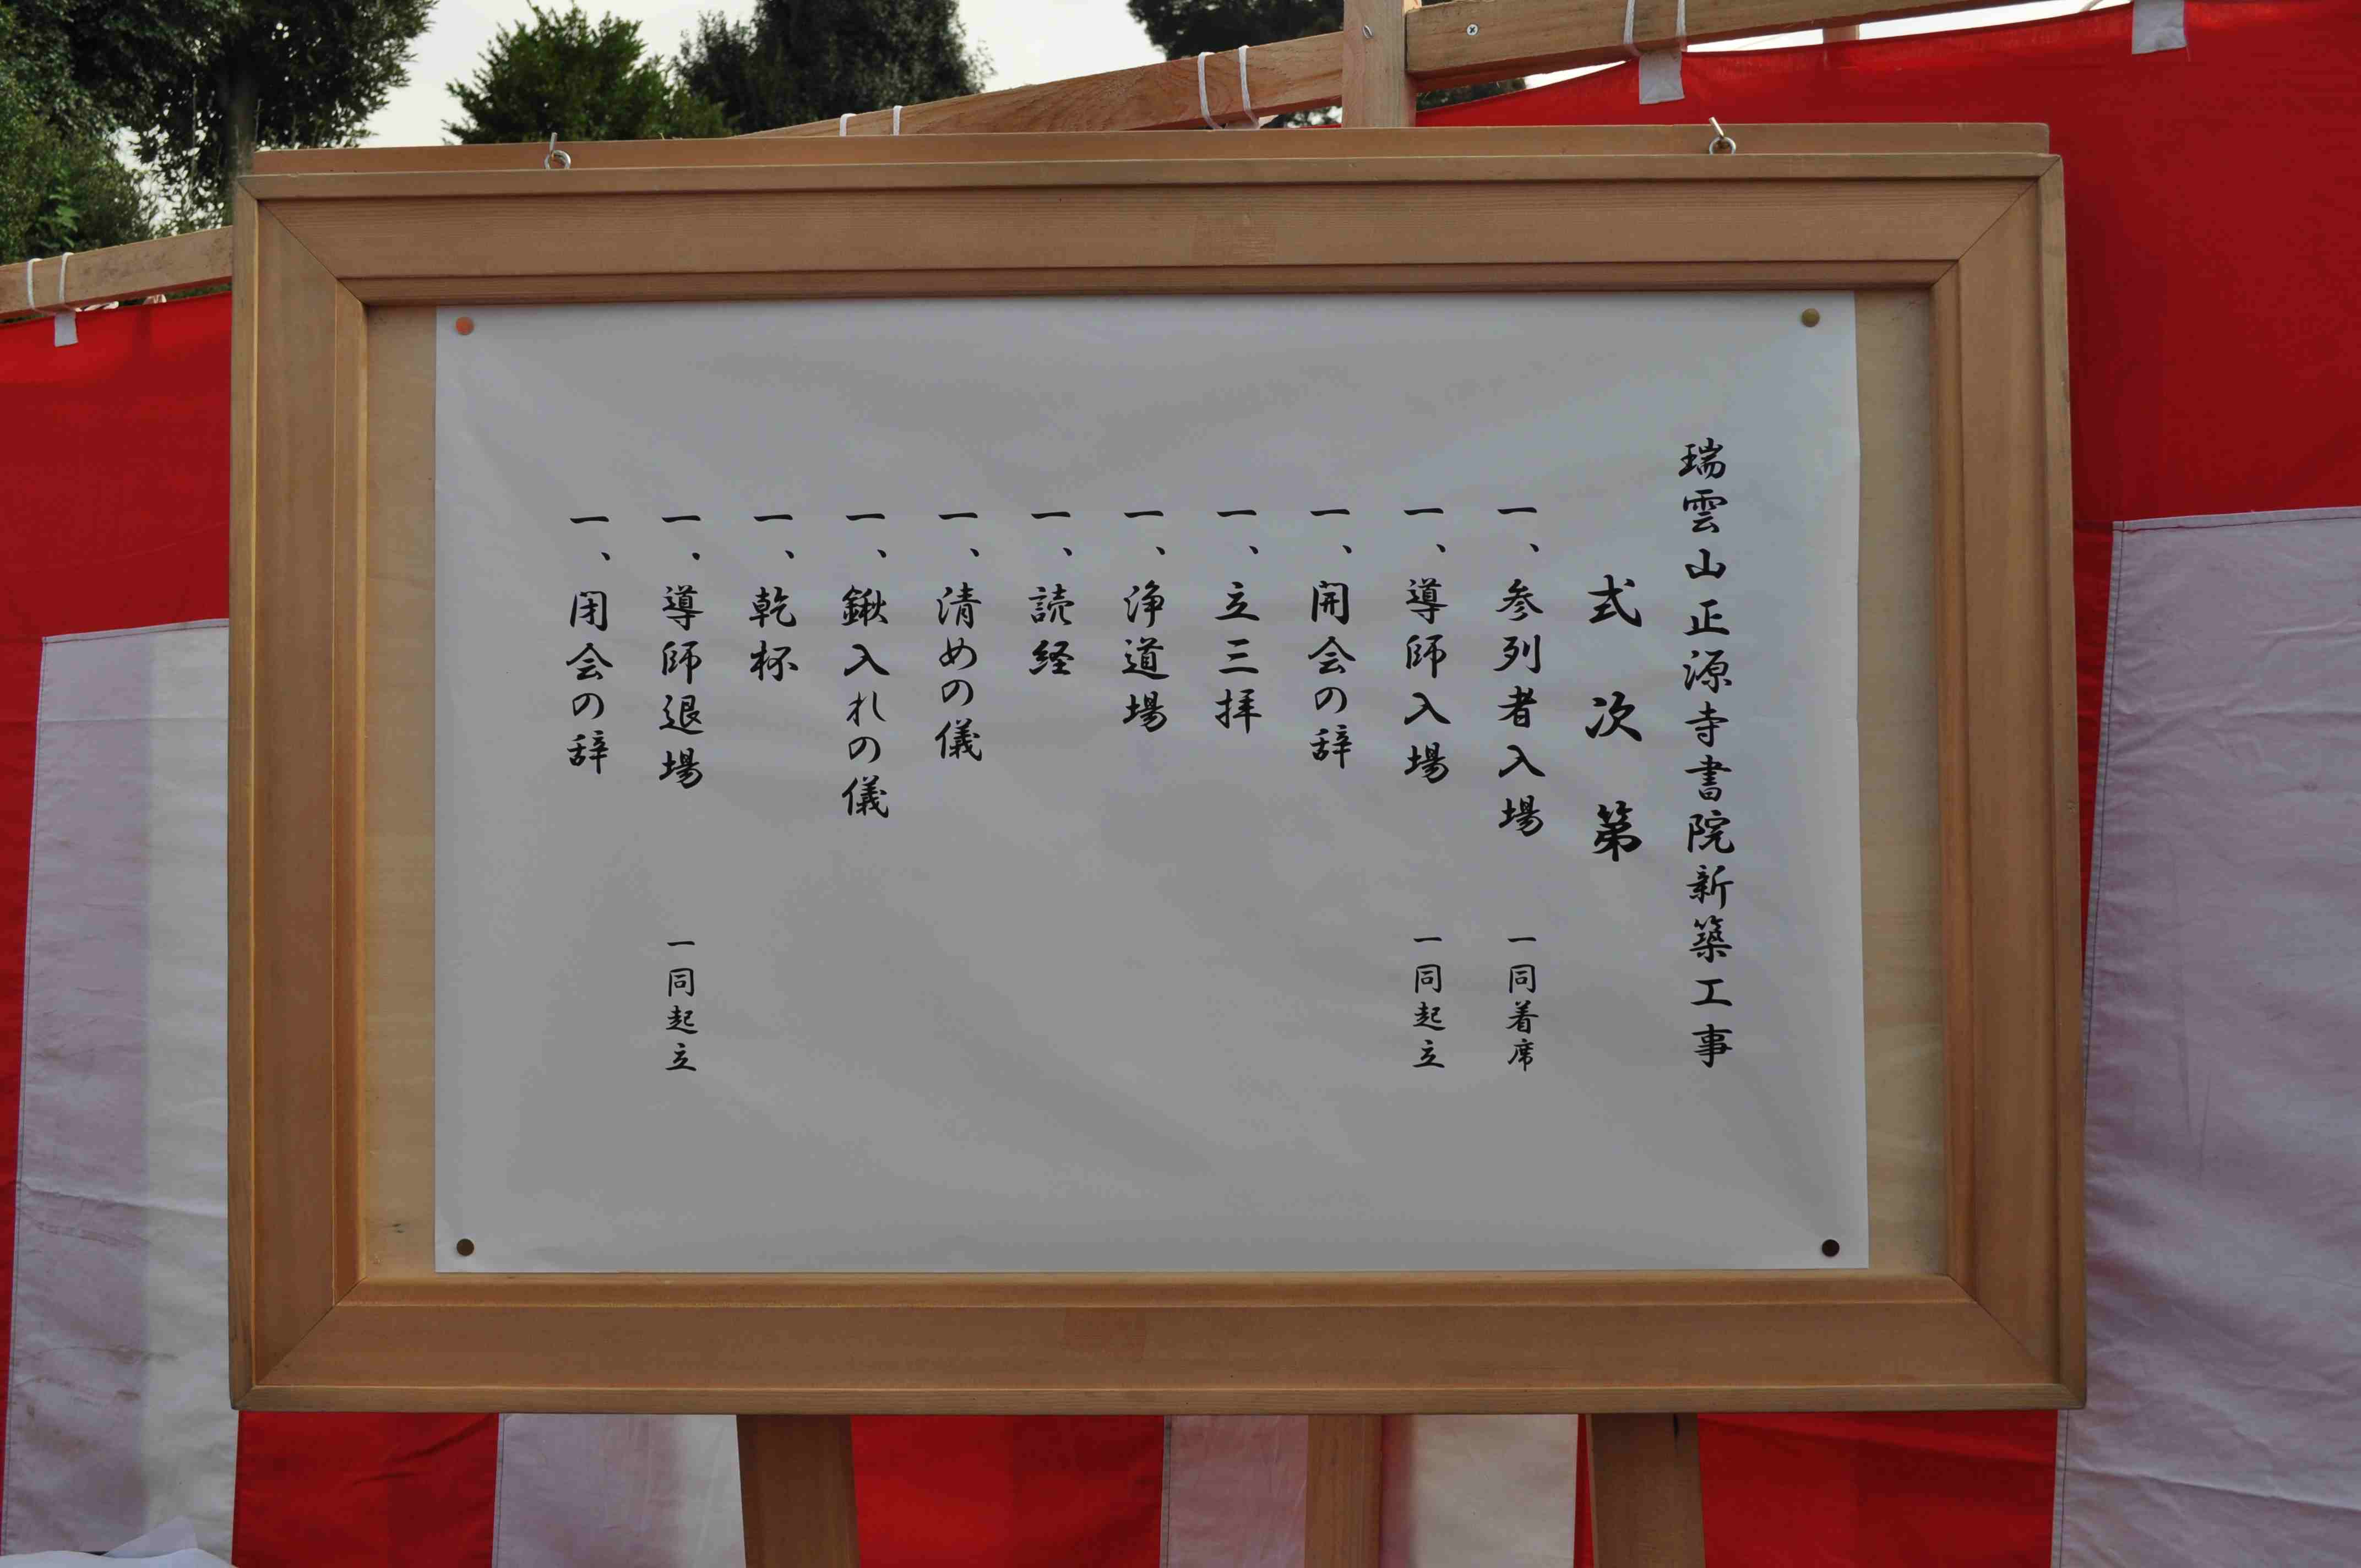 瑞雲山正源寺書院新築工事
式次第
一、参列者入場 一同着席
一、導師入場 一同起立
一、開会の辞
一、立三拝
一、浄道場
一、読経
一、清めの儀
一、鍬入れの儀
一、乾杯
一、導師退場 一同起立
一、閉会の辞